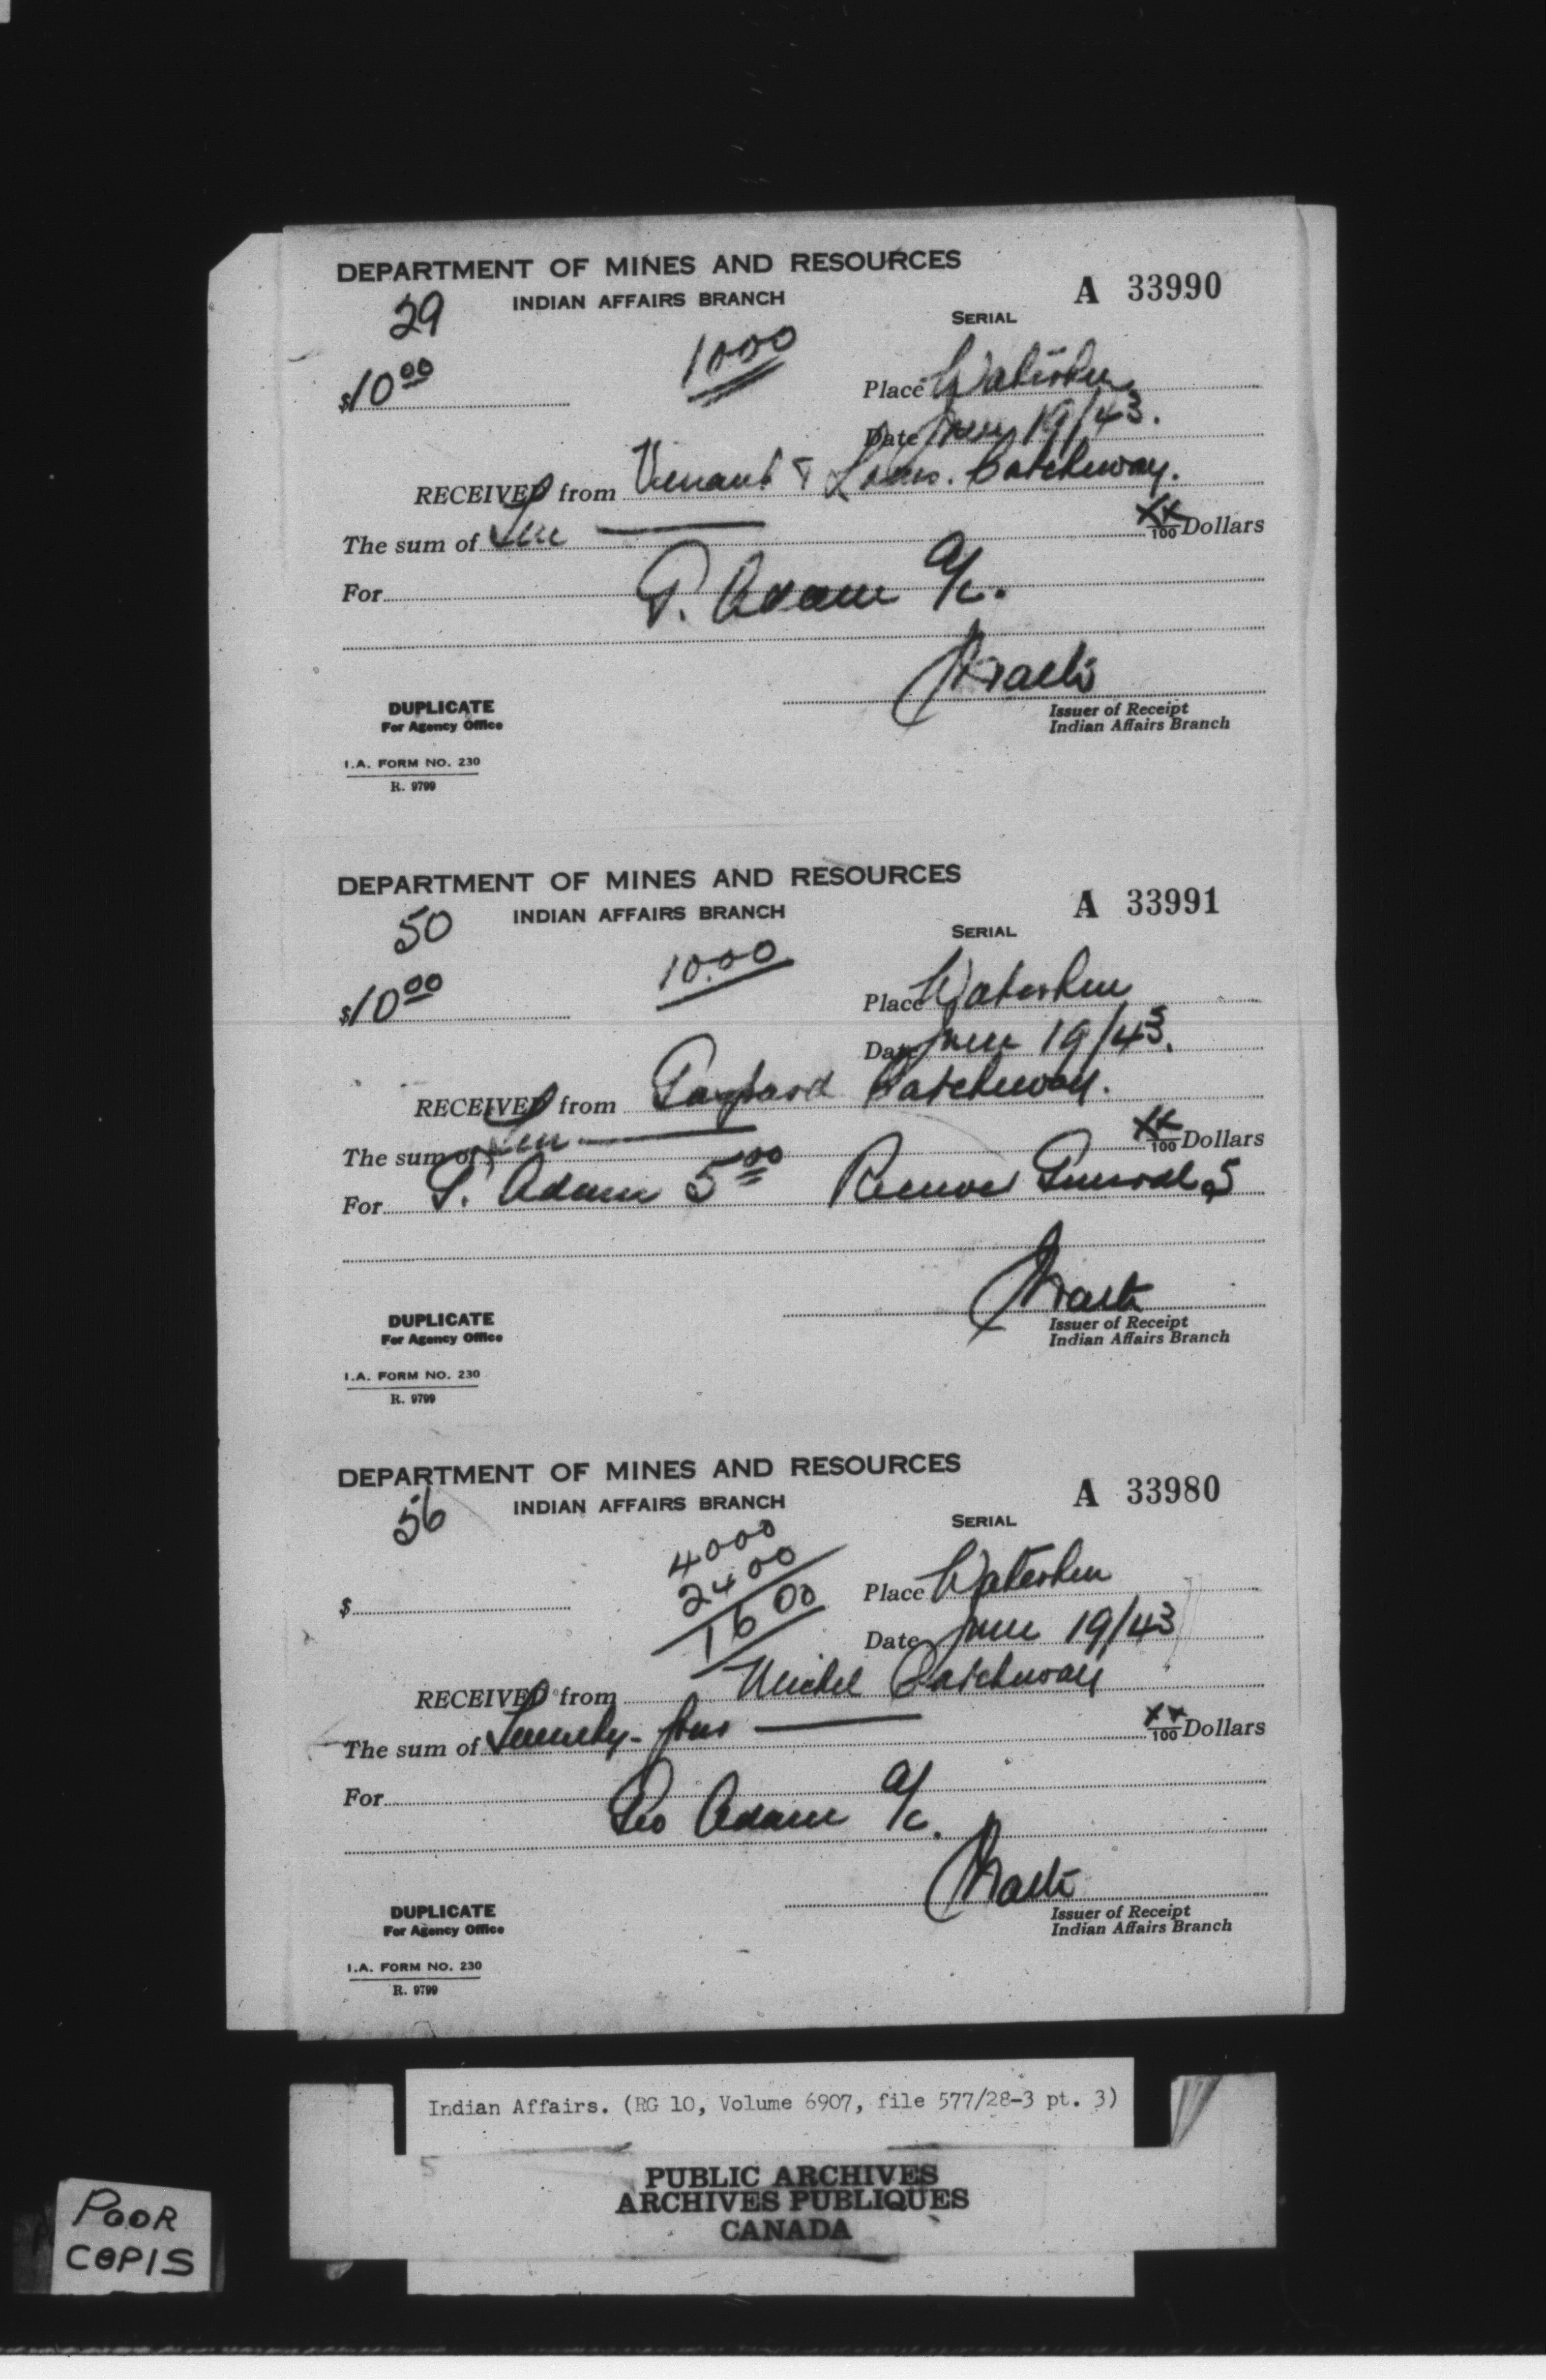 DEPARTMENT OF MINES AND RESOURCES
INDIAN AFFAIRS BRANCH
A 33990
SERIAL
29
1000
$10 00
Place Waterhen
Date June 19/43.
RECEIVED from & Louis. Catcheway.
The sum of Ten XX/100 Dollars
For
P. Adam a/c.
Issuer of Receipt
Indian Affairs Branch
DUPLICATE
For Agency Office
I.A. FORM NO. 230
R. 9799
DEPARTMENT OF MINES AND RESOURCES
INDIAN AFFAIRS BRANCH
A 33991
SERIAL
50
10.00
$10 00
Place Waterhen
Date June 19/43.
RECEIVED from Catcheway.
The sum of Ten XX/100 Dollars
For P. Adam 5 00 5
Issuer of Receipt
Indian Affairs Branch
DUPLICATE
For Agency Office
I.A. FORM NO. 230
R. 9799
DEPARTMENT OF MINES AND RESOURCES
INDIAN AFFAIRS BRANCH
A 33980
SERIAL
56
4000
2400
1600
$
Place Waterhen
Date June 19/43
RECEIVED from Michel Catcheway
The sum of Twenty-four XX/100 Dollars
For
Adam a/c.
Issuer of Receipt
Indian Affairs Branch
DUPLICATE
For Agency Office
I.A. FORM NO. 230
R. 9799
Indian Affairs. (RG 10, Volume 6907, file 577/28-3 pt. 3)
5
PUBLIC ARCHIVES
ARCHIVES PUBLIQUES
CANADA
POOR
COPIS